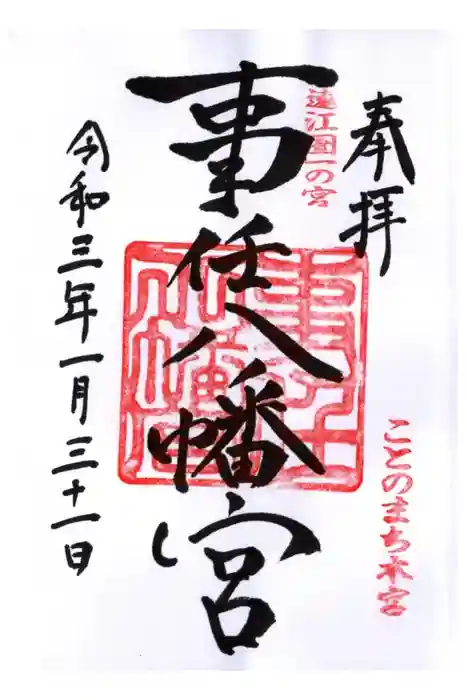 奉拝
ことのまち本宮
遠江国一の宮
事任八幡宮
令和三年一月三十一日